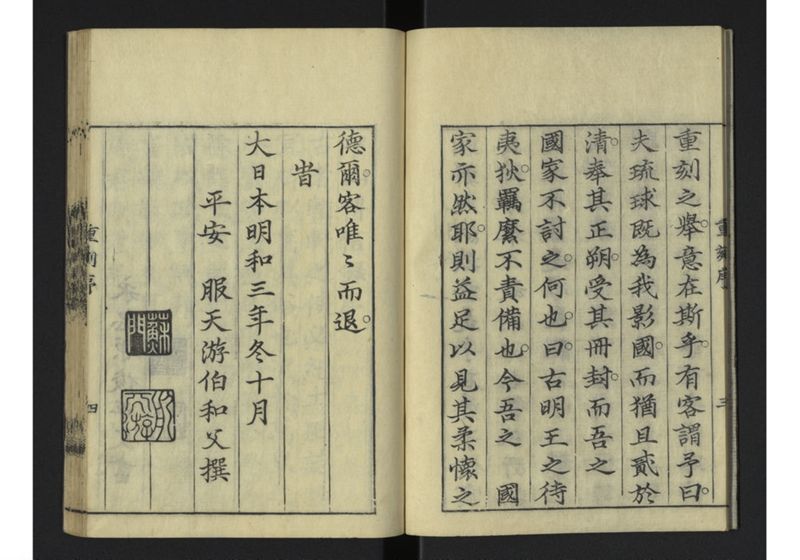 重刻之舉。意在斯乎。有客謂予曰。
夫琉球既為我影國。而猶且貳於
清。奉其正朔。受其冊封。而吾之
國家不討之。何也。曰。古明王之待
夷狄。羈縻不責備也。今吾之　國
家亦然耶。則益足以見其柔懷之
重刻序
三
德爾。客唯〻而退。
旹
大日本明和三年冬十月
平安　服天游伯和父撰
蘇門
重刻序
四